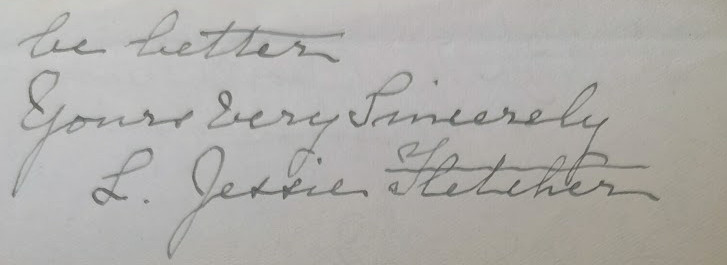 be better
Yours Very Sincerely
L. Jessie Fletcher